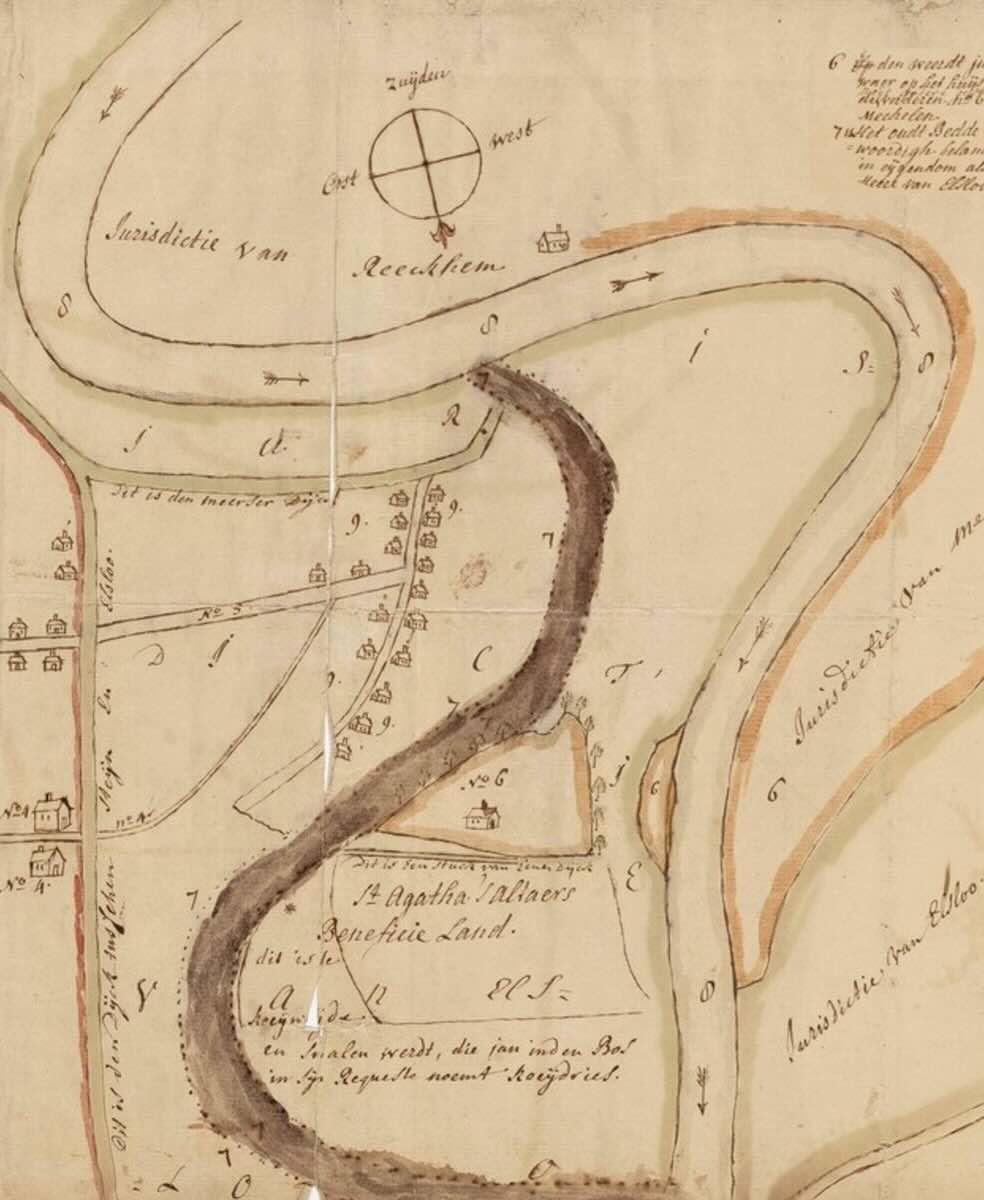 Zuijden
West
Oost
6 Op den weerdt
waer op het huijs
Mechelen
7 Het oudt Bedde
in eijgendom
Heere van Elsloo
Jurisdictie van
Reeckhem
8
8
8
i
S=
J
U
R
Dit is den meerser Dijck
9.
9.
7
7
No 5
D
J
C
T
9.
9.
7
Jurisdictie van me
6
No 6
6
No 4
no 4.
No 4.
Dit is den Dijck tusschen Steijn en Elsloo.
Dit is een stuck van eenen Dijck
E
St Agatha altaers
Beneficie Land.
dit is le
7
V
A
N
ELS=
Koeijweijde
en Smalen werdt, die jan inden Bos
in sijn Requeste noemt Koeijdries.
8
Jurisdictie van Elsloo.
7
7
L
O
O